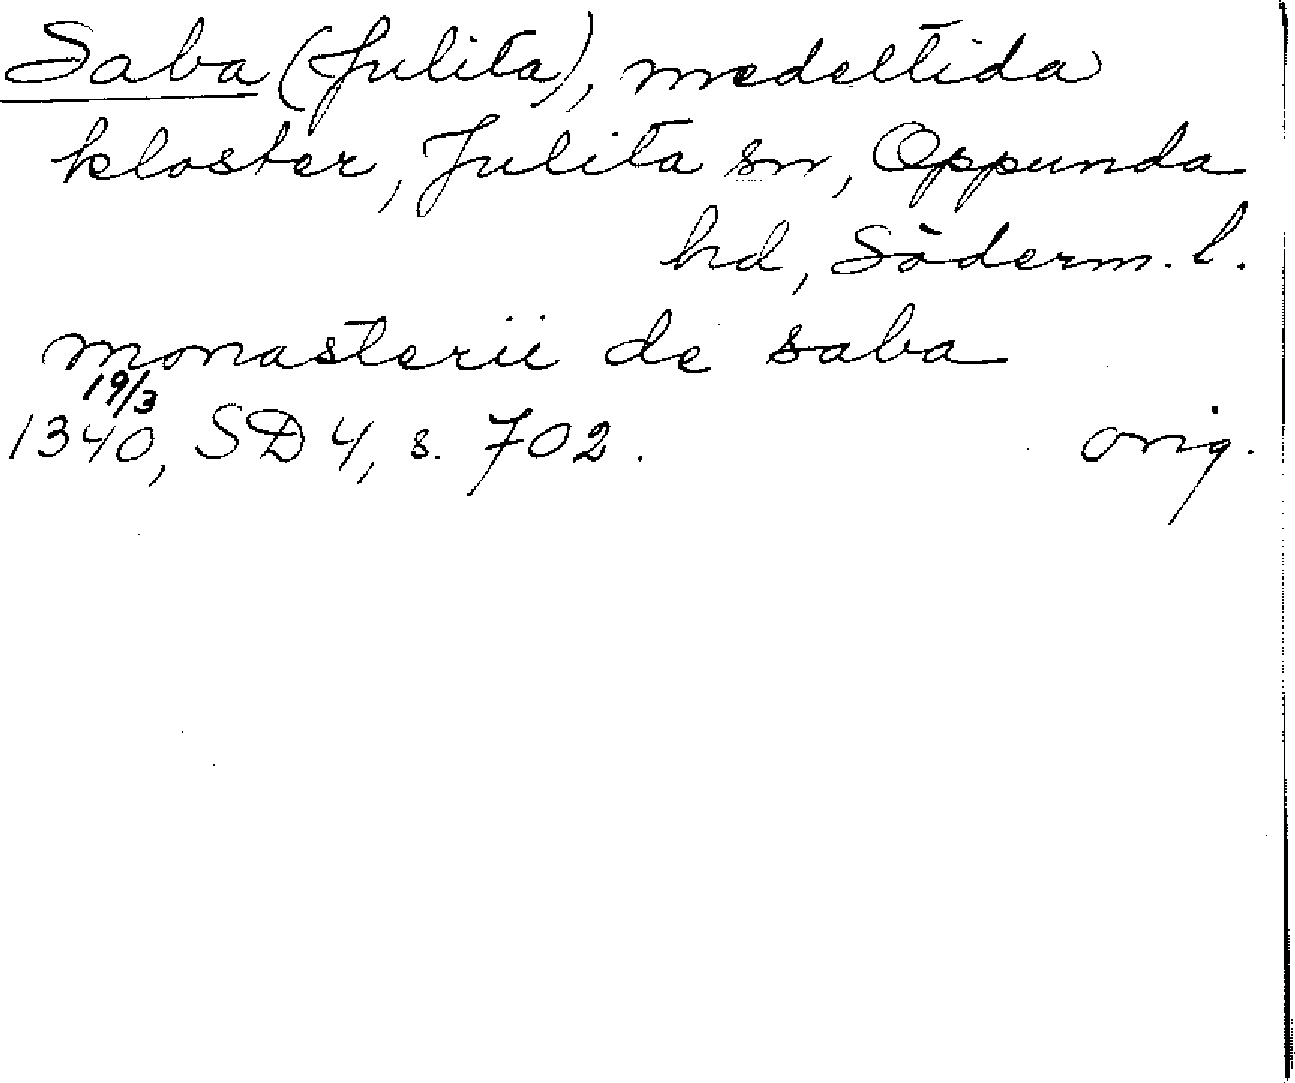 Saba (Julita), medeltida
kloster, Julita sn, Oppunda
hd, Söderm. l.
monasterii de saba
19/3
1340, SD 4, s. 702. orig.